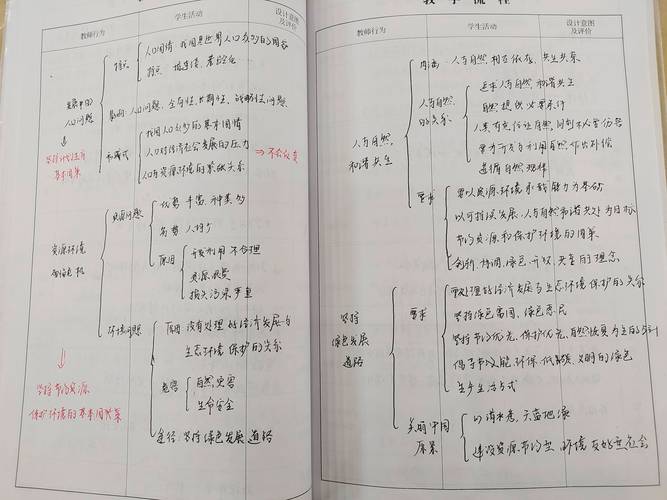 教师行为 学生活动 设计意图及评价
特点 人口国情 我国是世界人口最多的国家
特点
发展中的人口问题
影响 人口问题,全局性,长期性,战略性问题
我国人口众多的基本国情
人口对经济社会发展的压力
人口与资源环境的紧张关系
→不会改变
坚持计划生育基本国策
资源问题
优势 丰富,种类多
劣势 人均少
原因
开发利用不合理
资源浪费
损失污染严重
资源环境
危机
环境问题
原因 没有处理好经济发展与
生态环境保护的关系
危害
自然灾害
生命安全
途径:坚持绿色发展道路
坚持节约资源
保护环境的基本国策
教学流程
教师行为 学生活动 设计意图及评价
内涵 人与自然,相互依存,共生共系
人与自然的关系
追求人与自然,和谐共生
自然提供必要条件
人类有
遵循自然规律
人与自然
和谐共生
要求
要以资源环境承载能力为基础
以可持续发展,人与自然和谐共处为目标
节约资源和保护环境的国策
创新,协调,绿色,开放,共享的理念
坚持绿色发展道路
要求
要处理好经济发展与生态环境保护的关系
坚持绿色富国,绿色惠民
坚持节约优先,保护优先,自然恢复为主的方针
倡导节约能,环保,低碳,文明的绿色
生产生活方式
美丽中国
愿景
天蓝地绿
建设资源节约型,环境友好型社会